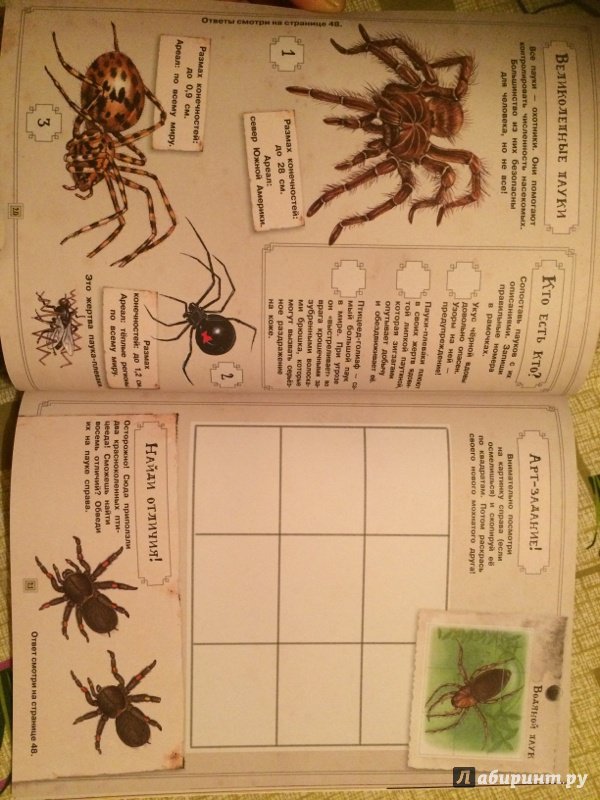 Великолепные пауки
Все пауки — охотники. Они помогают
контролировать численность насекомых.
Большинство из них безопасны
для человека, но не все!
1
Размах конечностей:
до 28 см.
Ареал:
север Южной Америки.
Размах конечностей:
до 0,9 см.
Ареал: по всему миру.
3
Ответы смотри на странице 48.
Кто есть кто?
Сопоставь пауков с их
описаниями. Запиши
правильные номера
в рамочках.
Укус чёрной вдовы
довольно опасен.
Узоры на ней —
предупреждение!
Пауки-плеваки плюют
в своих жертв ядови-
той липкой паутиной,
которая зигзагами
опутывает добычу
и обездвиживает её.
Птицеед-голиаф — са-
мый большой паук
в мире. При угрозе
он «выстреливает» во
врага крошечными за-
зубренными волоска-
ми брюшка, которые
могут вызвать серьёз-
ное раздражение
на коже.
2
Размах
конечностей: до 1,2 см.
Ареал: тёплые регионы
по всему миру.
Это жертва паука-плеваки.
20
Арт-задание!
Внимательно посмотри
на картинку справа (если
осмелишься) и скопируй её
по квадратам. Потом раскрась
своего нового мохнатого друга!
Водяной паук
Найди отличия!
Осторожно! Сюда приползли
два красноколенных пти-
цееда! Сможешь найти
восемь отличий? Обведи
их на пауке справа.
Ответ смотри на странице 48.
21
Лабиринт.ру